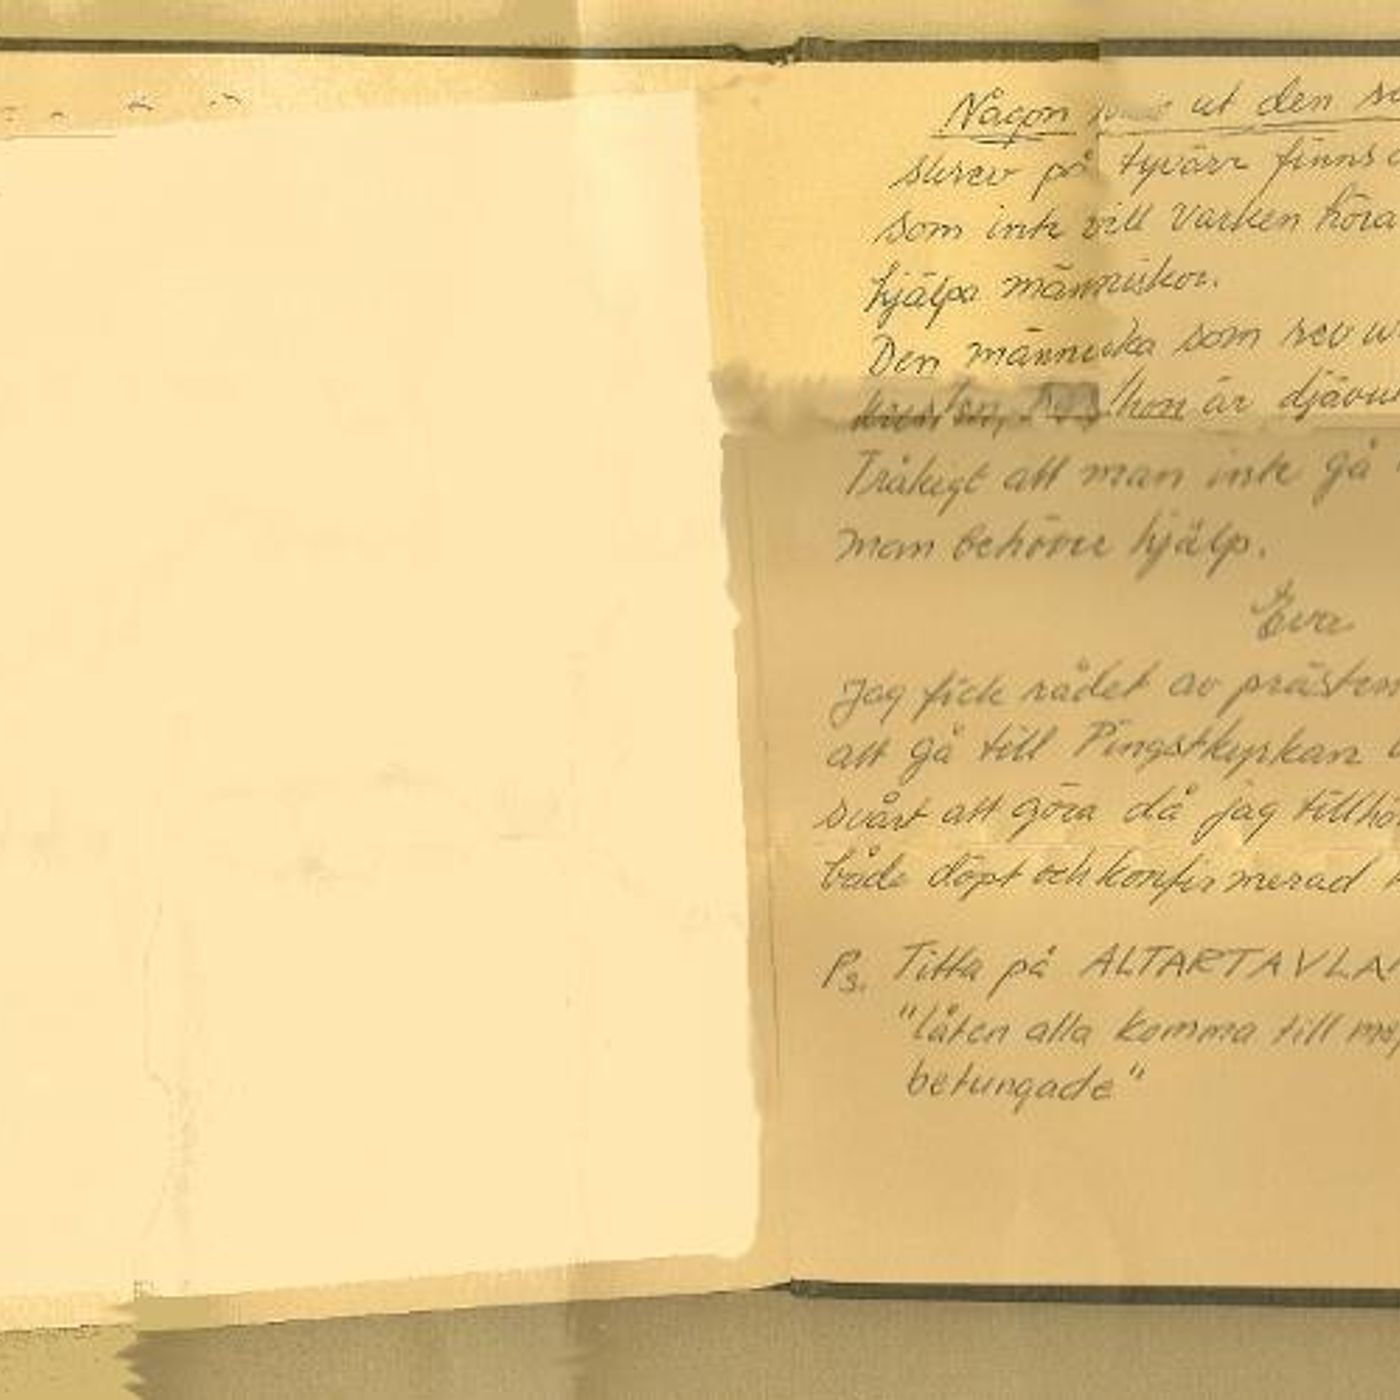 Någon ut den
skrev på tyvärr finns
som inte vill varken höra
hjälpa människor.
Den människa som rev
hon är djävul
Tråkigt att man inte gå
man behöver hjälp.
Eva
Jag fick rådet av prästen
att gå till Pingstkyrkan
svårt att göra då jag tillhö
både döpt och konfirmerad
Ps. Titta på ALTARTAVLA
"låten alla komma till mig
betungade"